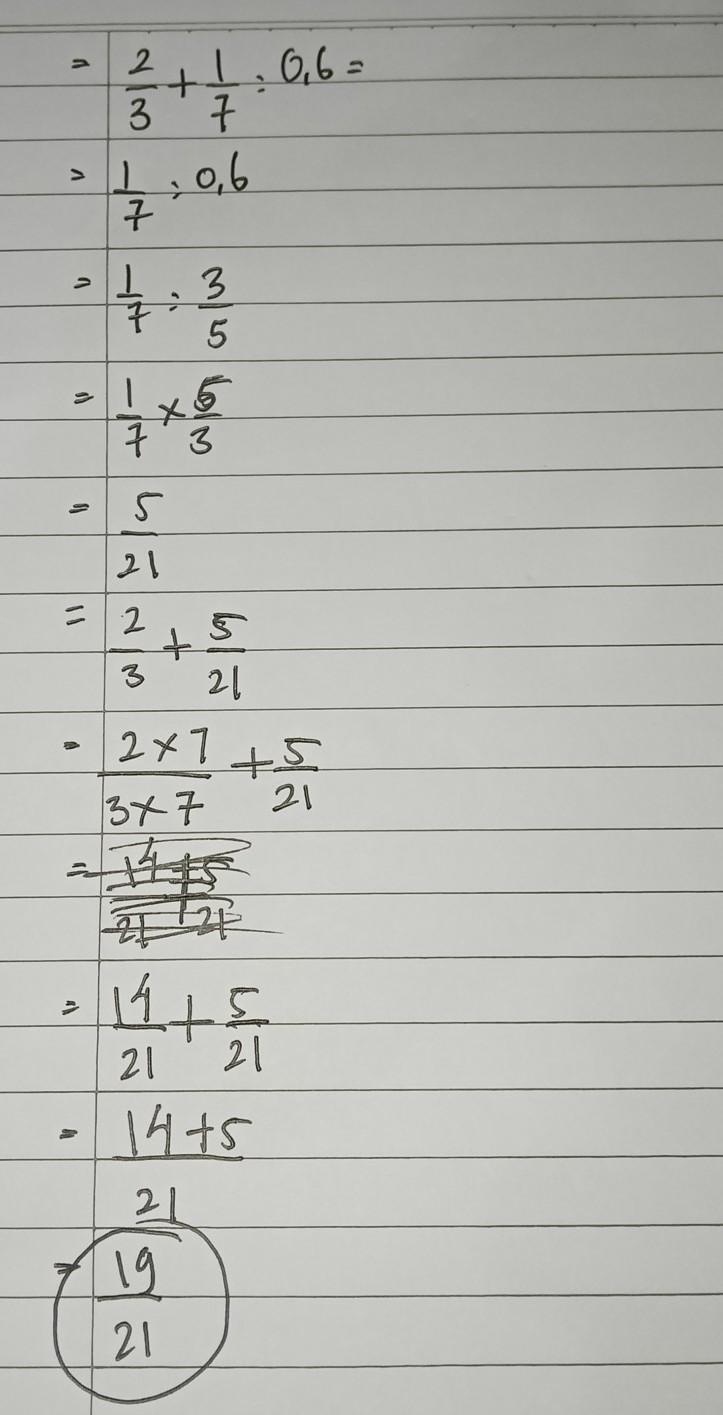 = 2/3 + 1/7 : 0,6 =
= 1/7 : 0,6
= 1/7 : 3/5
= 1/7 × 5/3
= 5/21
= 2/3 + 5/21
= 2×7/3×7 + 5/21
= 14/21 + 5/21
= 14/21 + 5/21
= 14+5/21
= 19/21